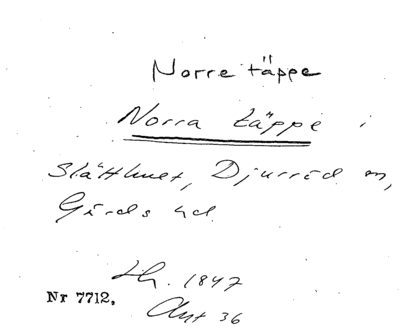 Norre täppe
Norra täppe i
Slätthuset, Djurröd sn,
Gärds hd.
Lh. 1847
Nr 7712, Akt 36